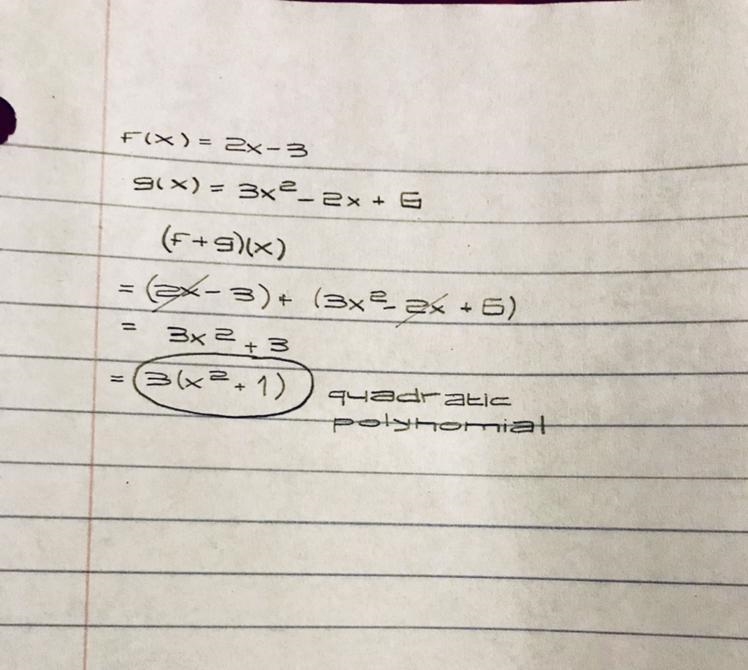 f(x) = 2x - 3
g(x) = 3x² - 2x + 6
(f+g)(x)
= (2x - 3) + (3x² - 2x + 6)
= 3x² + 3
= 3(x² + 1) quadratic
polynomial